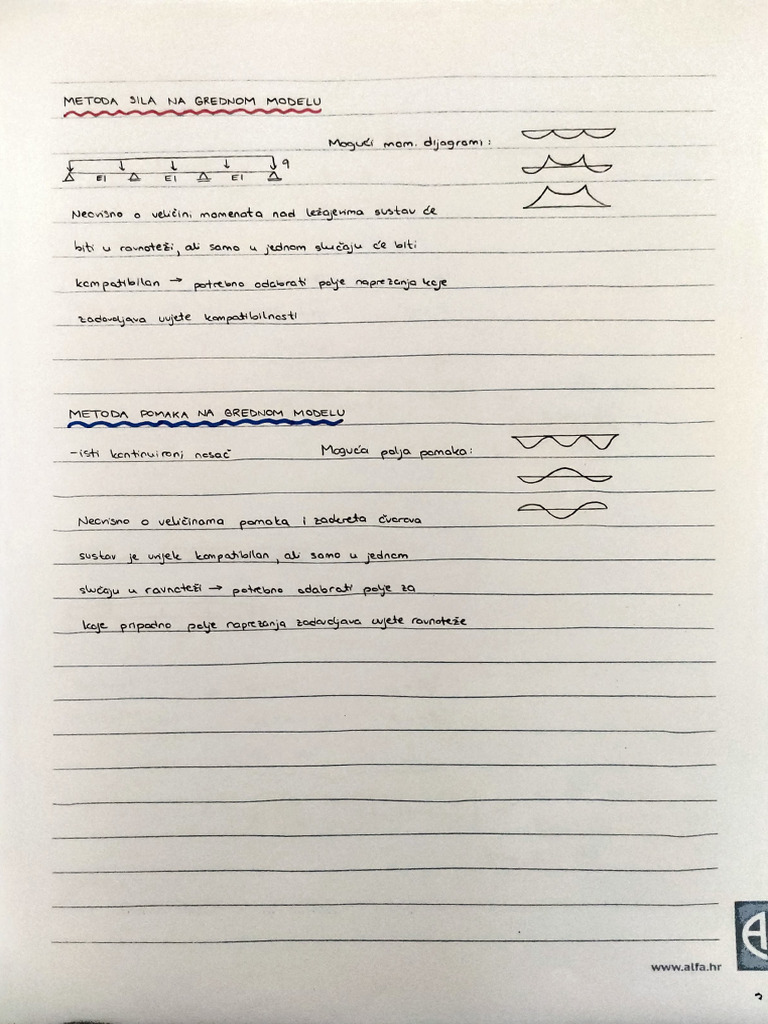 METODA SILA NA GREDNOM MODELU
Mogući mom. dijagrami:
q
EI EI EI
Neovisno o veličini momenata nad ležajevima sustav će
biti u ravnoteži, ali samo u jednom slučaju će biti
kompatibilan → potrebno odabrati polje naprezanja koje
zadovoljava uvjete kompatibilnosti
METODA POMAKA NA GREDNOM MODELU
-isti kontinuirani nosač
Moguća polja pomaka:
Neovisno o veličinama pomaka i zaokreta čvorova
sustav je uvijek kompatibilan, ali samo u jednom
slučaju u ravnoteži → potrebno odabrati polje za
koje pripadno polje naprezanja zadovoljava uvjete ravnoteže
www.alfa.hr
A